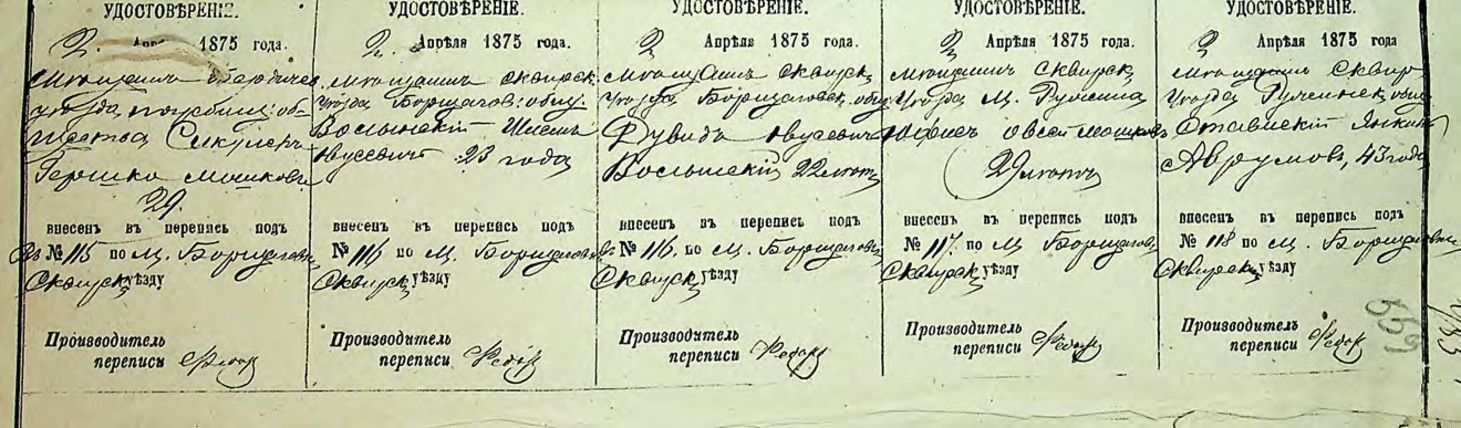 УДОСТОВѢРЕНІЕ.
2. Апрѣ 1875 года.
Мѣщанинъ Бердичев
уѣзда, погребищ: об-
щества Сикулеръ
Гершко Мошкови
29.
внесенъ въ перепись подъ
№ 115 по м. Борщагов
Сквирск уѣзду
Производитель
переписи Федор
УДОСТОВѢРЕНІЕ.
2. Апрѣля 1875 года.
Мѣщанинъ сквирск.
уѣзда Борщагов: общ.
Волынскій
Нусевичъ 23 года
внесенъ въ перепись подъ
№ 116 по м. Борщагов
Сквирск уѣзду
Производитель
переписи Федор
УДОСТОВѢРЕНІЕ.
2 Апрѣля 1875 года.
Мѣщанинъ сквирск
уѣзда Борщаговск. общ
Дувидъ Нусевичъ
Волынскій 22 лѣтъ
внесенъ въ перепись подъ
№ 116. по м. Борщагов
Сквирск уѣзду
Производитель
переписи Федор
УДОСТОВѢРЕНІЕ.
2 Апрѣля 1875 года.
Мѣщанинъ Сквирск
уѣзда м. Ружина
Овсей Мошков
29 лѣтъ
внесенъ въ перепись подъ
№ 117. по м. Борщагов
Сквирск уѣзду
Производитель
переписи Федор
УДОСТОВѢРЕНІЕ.
2 Апрѣля 1875 года.
Мѣщанинъ Сквир
уѣзда Ружинск общ
Ставискій Янкель
Аврумовъ, 43 года
внесенъ въ перепись подъ
№ 118 по м. Борщаговки
Сквирск уѣзду
Производитель
переписи Федор
559